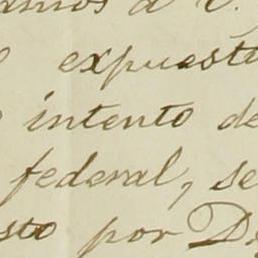 expuest
intento de
federal, se
sto por D